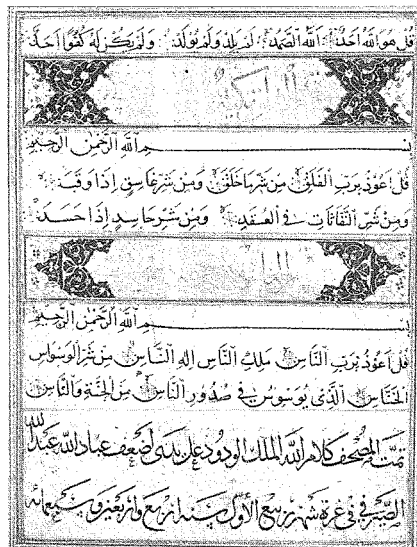 قُلْ هُوَ اللهُ اَحَدٌ اَللهُ الصَّمَدُ لَمْ يَلِدْ وَلَمْ يُولَدْ وَلَمْ يَكُنْ لَهُ كُفُوًا اَحَدٌ
بِسْمِ اللهِ الرَّحْمٰنِ الرَّحِيمِ
قُلْ اَعُوذُ بِرَبِّ الْفَلَقِ مِنْ شَرِّ مَا خَلَقَ وَمِنْ شَرِّ غَاسِقٍ اِذَا وَقَبَ
وَمِنْ شَرِّ النَّفَّاثَاتِ فِي الْعُقَدِ وَمِنْ شَرِّ حَاسِدٍ اِذَا حَسَدَ
بِسْمِ اللهِ الرَّحْمٰنِ الرَّحِيمِ
قُلْ اَعُوذُ بِرَبِّ النَّاسِ مَلِكِ النَّاسِ اِلٰهِ النَّاسِ مِنْ شَرِّ الْوَسْوَاسِ
الْخَنَّاسِ اَلَّذِي يُوَسْوِسُ فِي صُدُورِ النَّاسِ مِنَ الْجِنَّةِ وَالنَّاسِ
تمت المصحف كلام الله الملك الودود على يدي اضعف عباد الله عبد الله
الصيرفي في غرة شهر ربيع الاول سنة اربع واربعين وسبعمائه